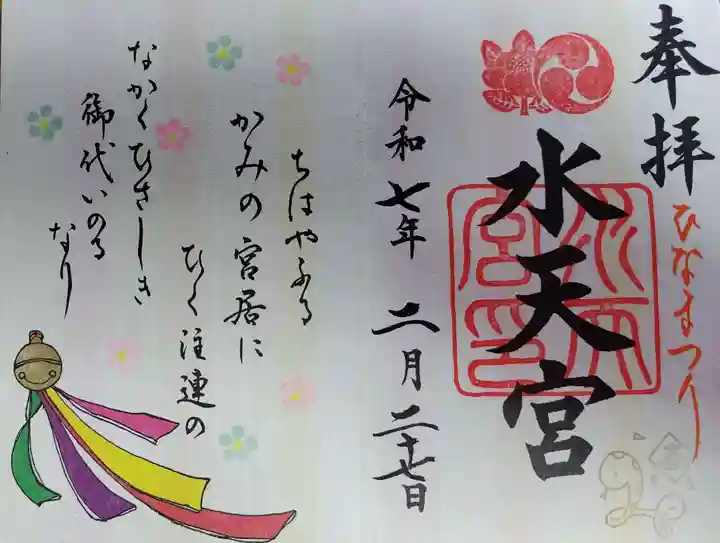 奉拝
ひなまつり
水天宮
令和七年 二月二十七日
ちはやふる
かみの宮居に
ひく注連の
なかくひさしき
御代いのる
なり